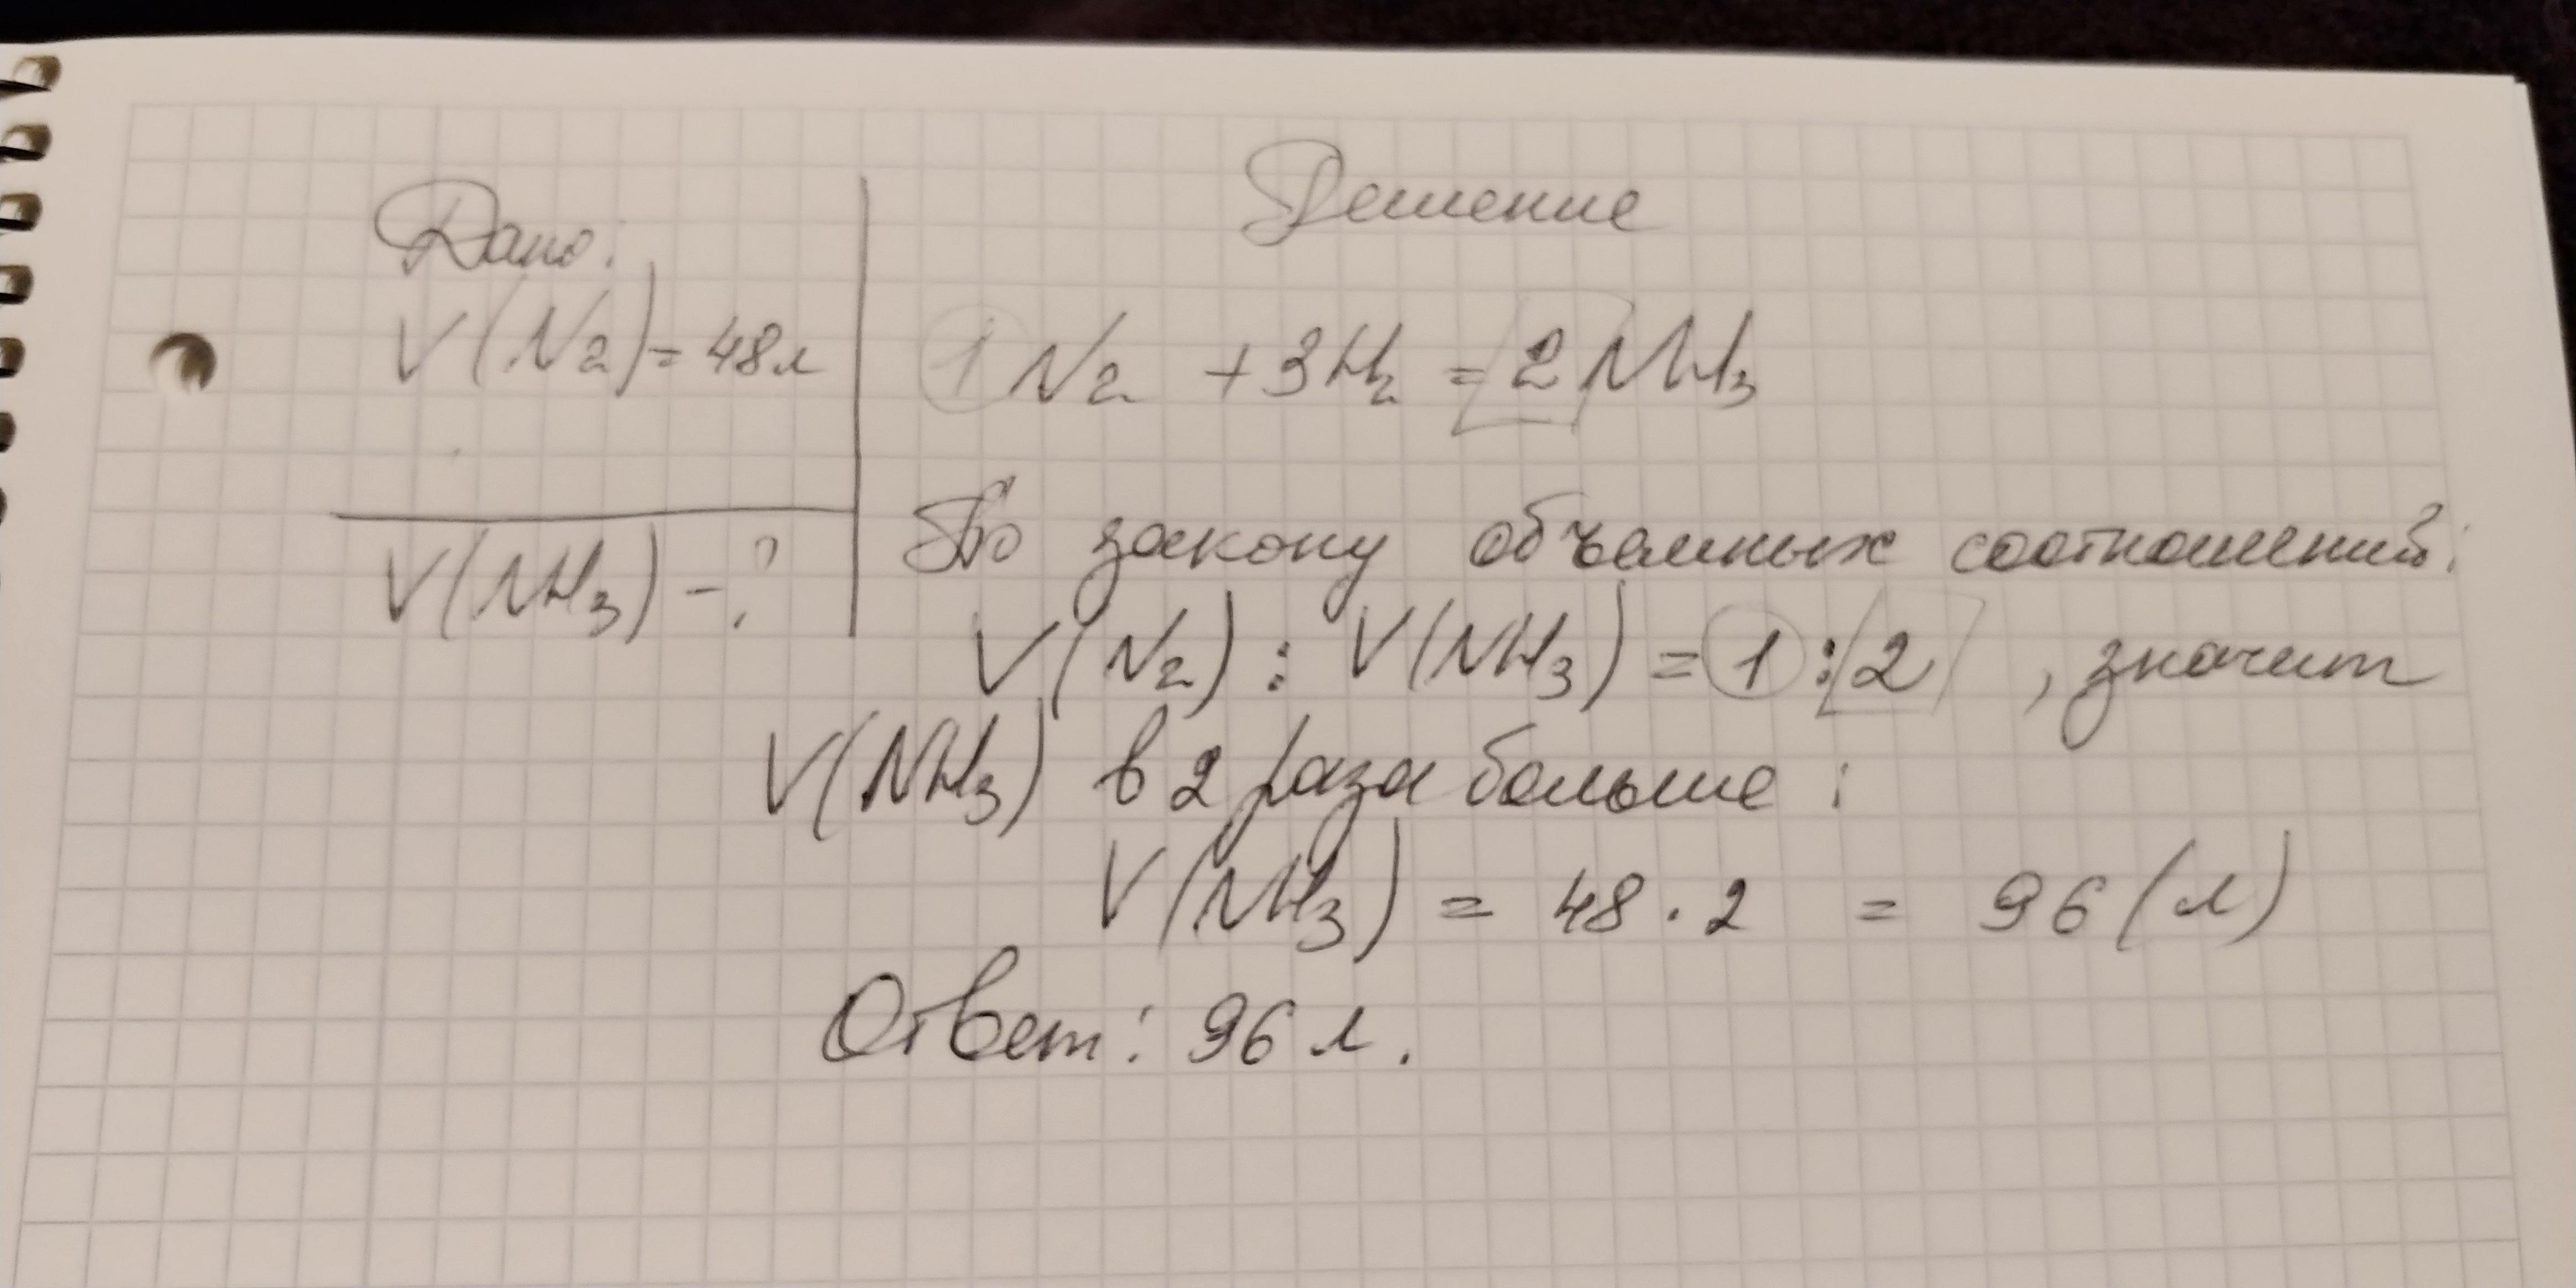 Дано:
V(N₂) = 48л
V(NH₃) - ?
Решение
1N₂ + 3H₂ = 2NH₃
По закону объемных соотношений:
V(N₂) : V(NH₃) = 1 : 2 , значит
V(NH₃) в 2 раза больше :
V(NH₃) = 48 · 2 = 96 (л)
Ответ: 96 л.